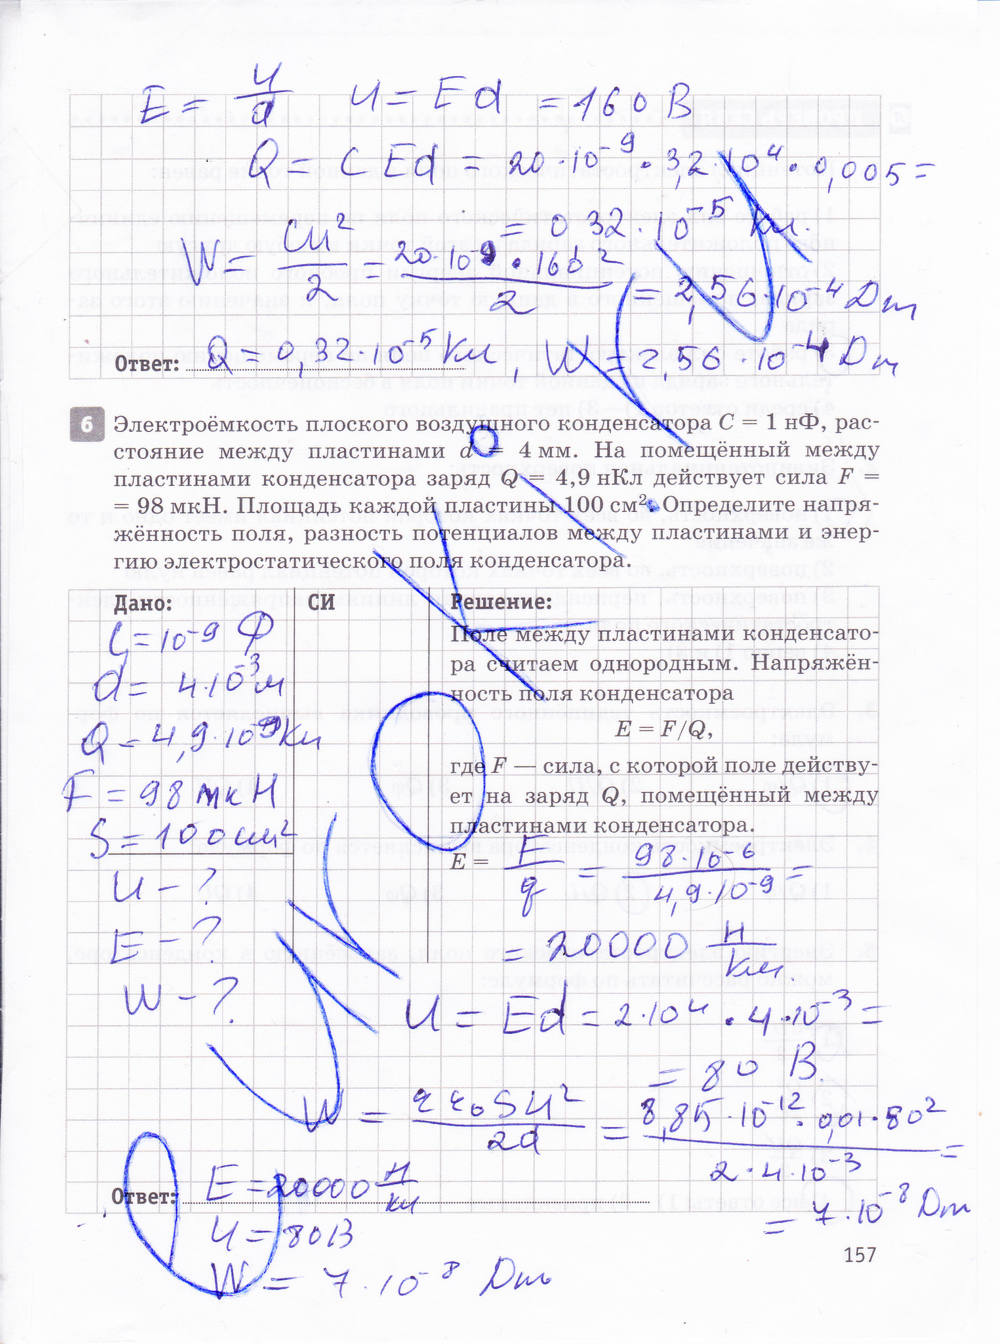 E = U/d   U = Ed = 160 В
Q = CEd = 20·10⁻⁹·3,2·10⁴·0,005 =
= 0,32·10⁻⁵ Кл.
W = CU²/2 = 20·10⁻⁹·160²/2 = 2,56·10⁻⁴ Дж
Ответ: Q = 0,32·10⁻⁵ Кл, W = 2,56·10⁻⁴ Дж
6 Электроёмкость плоского воздушного конденсатора C = 1 нФ, рас-
стояние между пластинами d = 4 мм. На помещённый между
пластинами конденсатора заряд Q = 4,9 нКл действует сила F =
= 98 мкН. Площадь каждой пластины 100 см². Определите напря-
жённость поля, разность потенциалов между пластинами и энер-
гию электростатического поля конденсатора.
Дано: СИ Решение:
C = 10⁻⁹ Ф
d = 4·10⁻³ м
Q = 4,9·10⁻⁹ Кл
F = 98 мкН
S = 100 см²
U – ?
E – ?
W – ?
Поле между пластинами конденсато-
ра считаем однородным. Напряжён-
ность поля конденсатора
E = F/Q,
где F — сила, с которой поле действу-
ет на заряд Q, помещённый между
пластинами конденсатора.
E = F/q = 98·10⁻⁶/4,9·10⁻⁹ =
= 20000 Н/Кл.
U = Ed = 2·10⁴·4·10⁻³ =
= 80 В.
W = εε₀SU²/2d = 8,85·10⁻¹²·0,01·80²/2·4·10⁻³ =
= 7·10⁻⁸ Дж
Ответ: E = 20000 Н/Кл
U = 80 В
W = 7·10⁻⁸ Дж
157